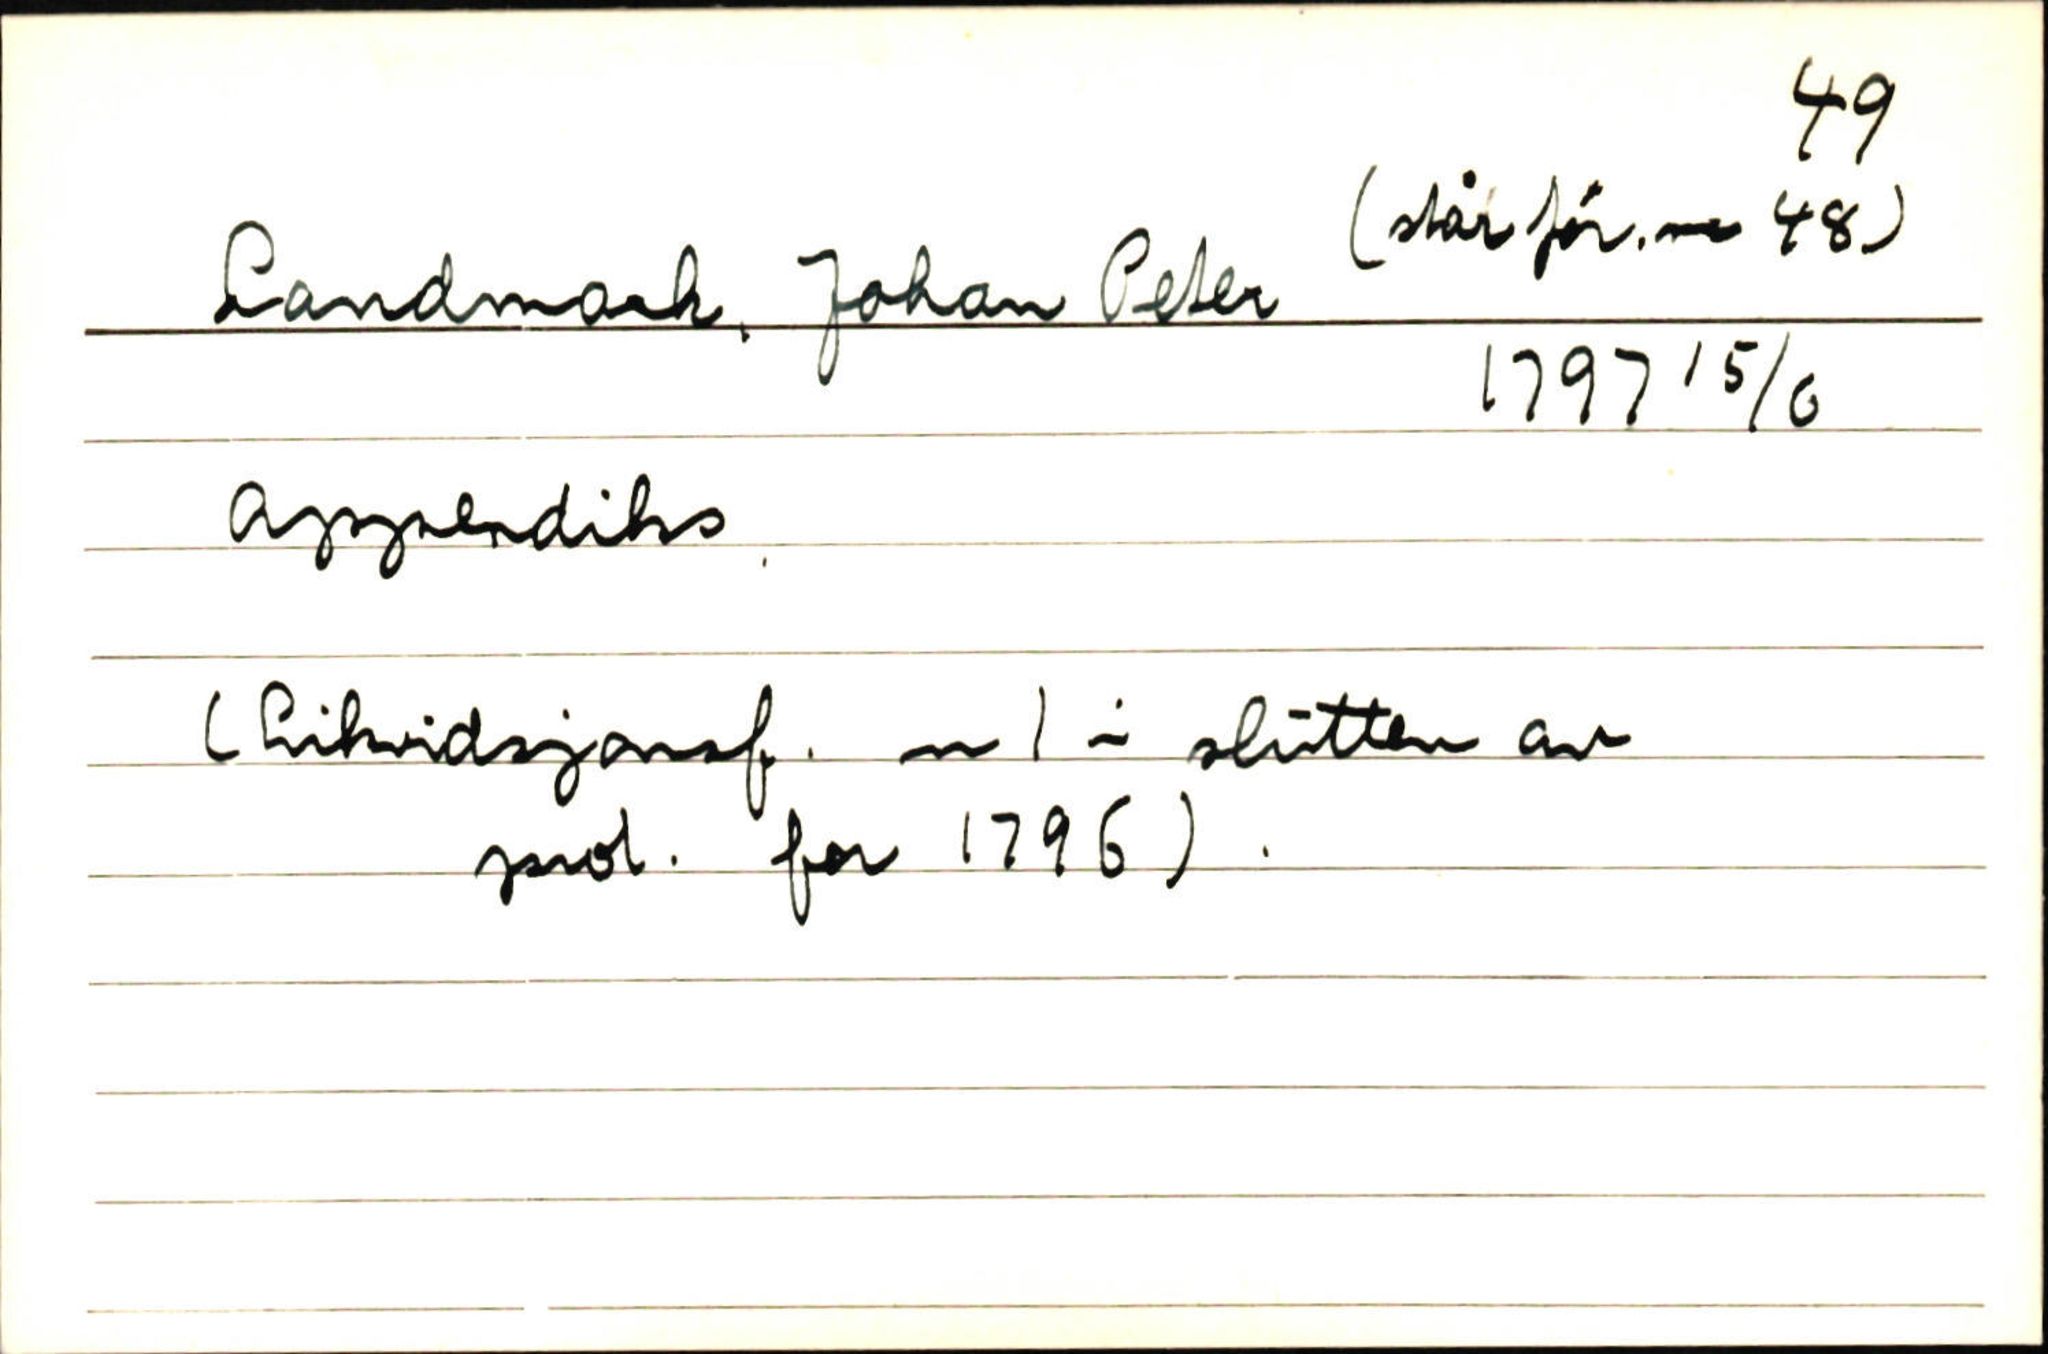 49
(står før nr 48)
Landmark, Johan Peter
1797 15/6
Appendiks
(Likvidsjonsf. nr 1 i slutten av
prot. for 1796).